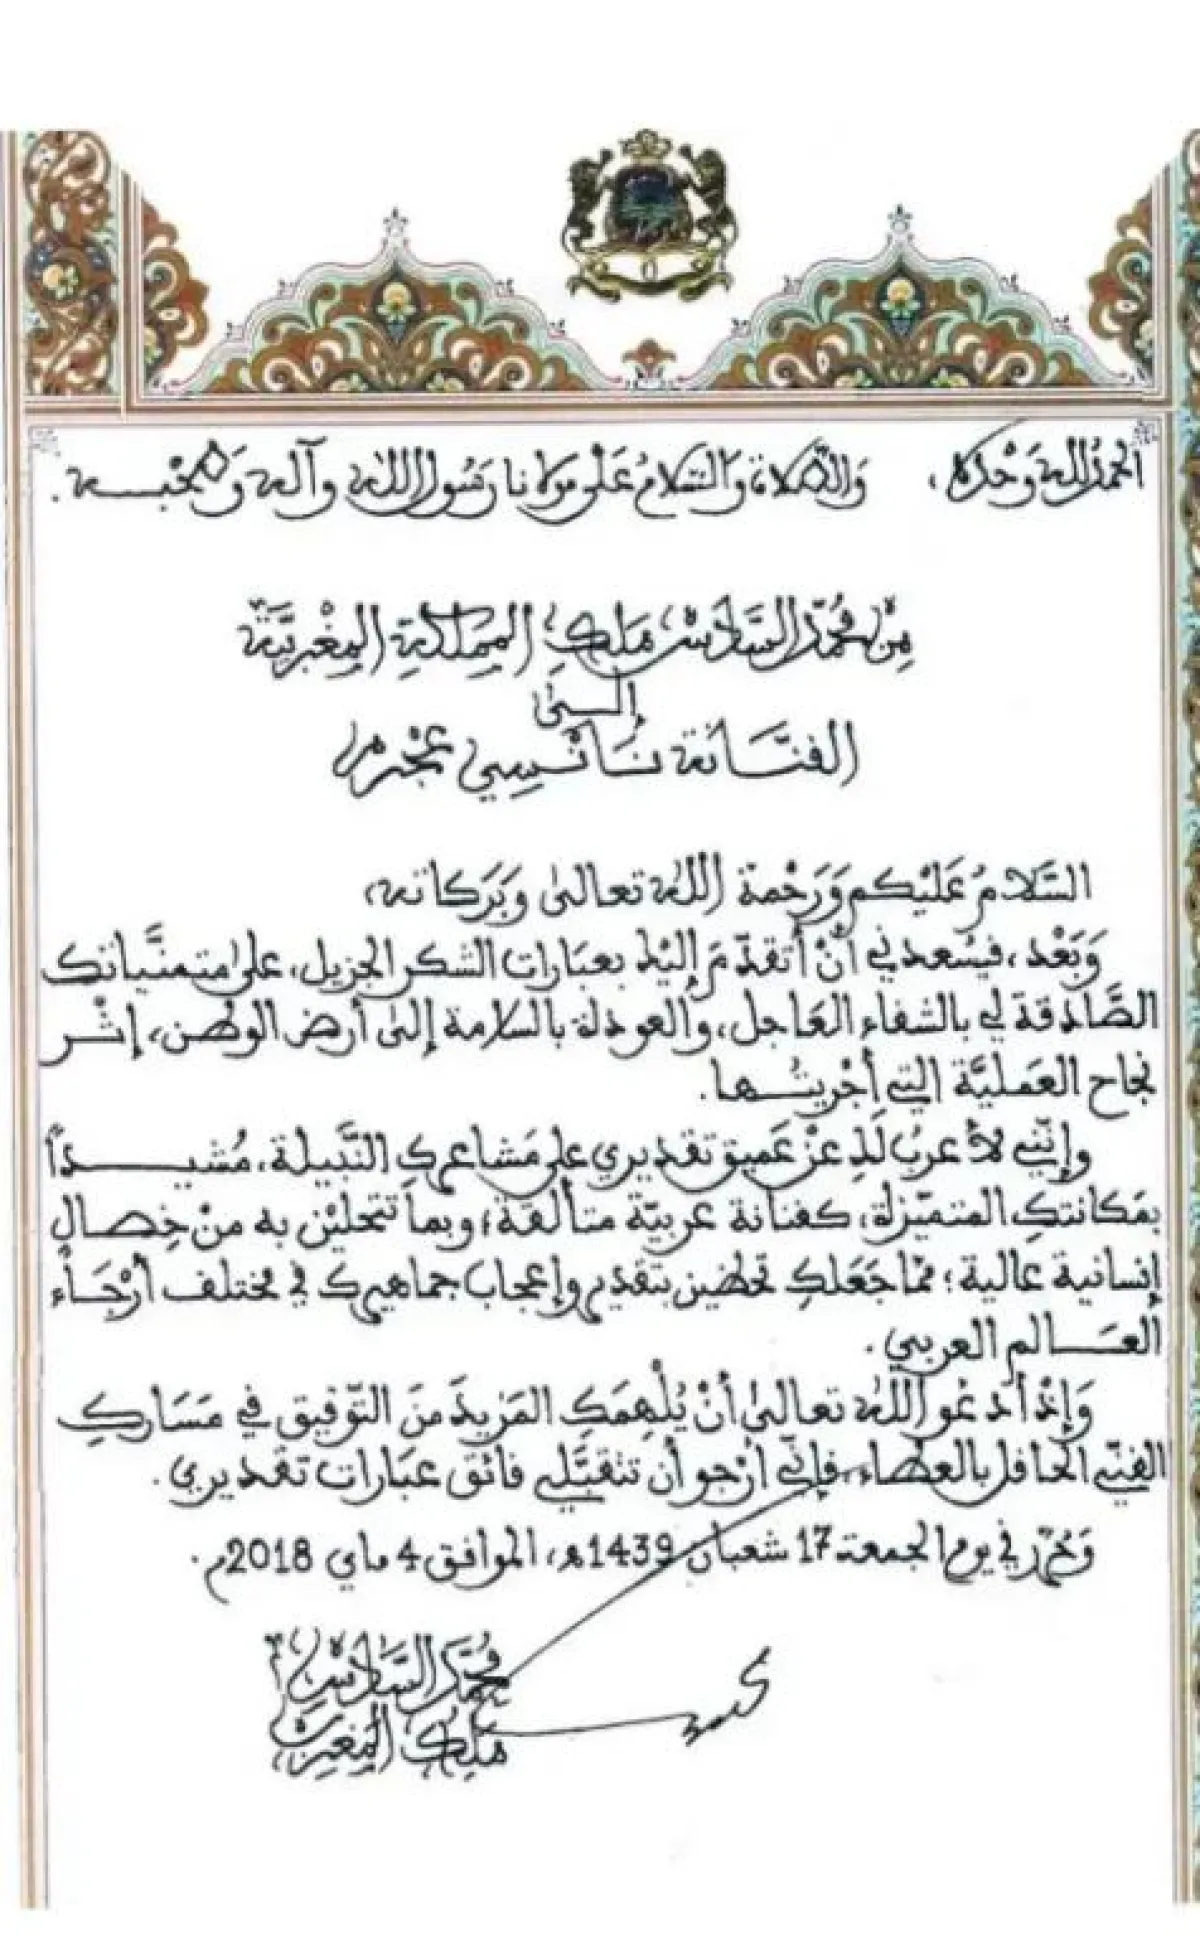 الحمدُ لله وَحْدَهُ، وَالصَّلَاةُ وَالسَّلَامُ عَلَى مَوْلَانَا رَسُولِ اللهِ وَآلِهِ وَصَحْبِهِ.
مِنْ مُحَمَّد السَّادِسِ مَلِكِ المَمْلَكَةِ المَغْرِبِيَّةِ
إلى
الفَنَّانَة نَانْسِي عَجْرَم
السَّلَامُ عَلَيْكُم وَرَحْمَة اللهِ تعالى وَبَرَكاته،
وَبَعْد، فيُسْعدني أَنْ أتقدَّمَ إليْكِ بعبَارات الشكر الجزيل، على متمنَّياتك
الصَّادقة لي بالشفاء العَاجل، والعودة بالسلامة إلى أرض الوطن، إثْر
نجاح العَمليَّة التي أجْريتُها.
وإنَّني لأعربُ لَكِ عنْ عَميق تقديري على مَشاعرك النَّبيلة، مُشيداً
بمَكانتكِ المتميّزة، كفنانة عربيّة متألقة؛ وبما تتحليْن به منْ خِصال
إنسانية عالية؛ ممّا جَعَلكِ تحظين بتقدير وإعجاب جماهيرك في مختلف أرْجَاء
العَالم العربي.
وَإذ أدعُو اللهَ تعالى أنْ يُلْهِمَكِ المَزيدَ منَ التّوفيق في مَسَاركِ
الفنّي الحَافل بالعطاء، فإنّي أرْجو أن تتقبّلي فائق عبَارات تقديري.
وَحُرّر في يوم الجمعة 17 شعبان 1439هـ، الموافق 4 ماي 2018م.
مُحَمَّد السَّادِس
مَلِك المَغْرِب